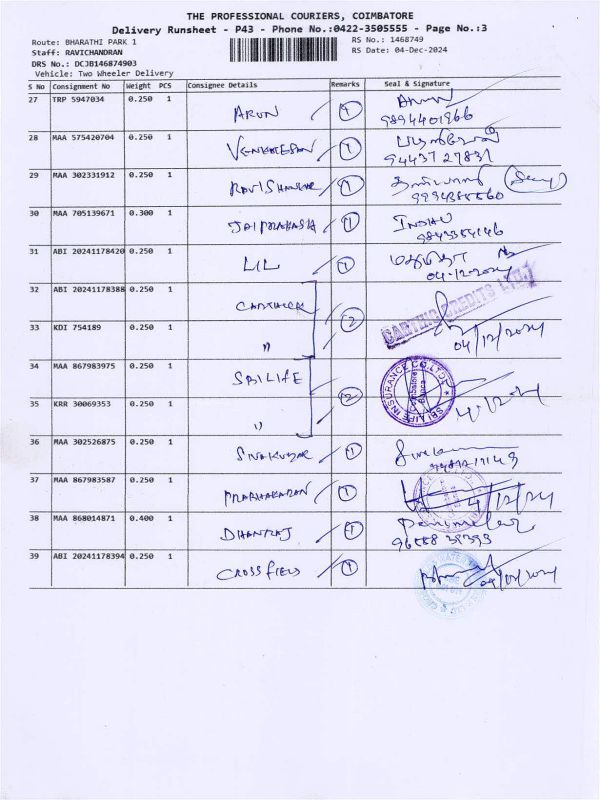 THE PROFESSIONAL COURIERS, COIMBATORE
Delivery Runsheet - P43 - Phone No.:0422-3505555 - Page No.:3
Route: BHARATHI PARK 1 RS No.: 1468749
Staff: RAVICHANDRAN RS Date: 04-Dec-2024
DRS No.: DCJB146874903
Vehicle: Two Wheeler Delivery
S No Consignment No Weight PCS Consignee Details Remarks Seal & Signature
27 TRP 5947034 0.250 1 ARUN 1
9894401966
28 MAA 575420704 0.250 1 VENKATESAN 1
94437 27831
29 MAA 302331912 0.250 1 RAVISHANKAR 1
30 MAA 705139671 0.300 1 JAIPRAKASH 1
9843354146
31 ABI 20241178420 0.250 1 LIL 1
04-12-2024
32 ABI 20241178388 0.250 1 2 CARTHIC CREDITS LTD.
33 KDI 754189 0.250 1 " 04/12/2024
34 MAA 867983975 0.250 1 SBI LIFE 2 SBI LIFE INSURANCE CO. LTD. Coimbatore Branch
35 KRR 30069353 0.250 1 " 4-12-24
36 MAA 302526875 0.250 1 SIVAKUMAR 1
37 MAA 867983587 0.250 1 PRABHAKARAN 1 4/12/24
38 MAA 868014871 0.400 1 DHANRAJ 1
39 ABI 20241178394 0.250 1 CROSSFIELD 1 04/12/2024